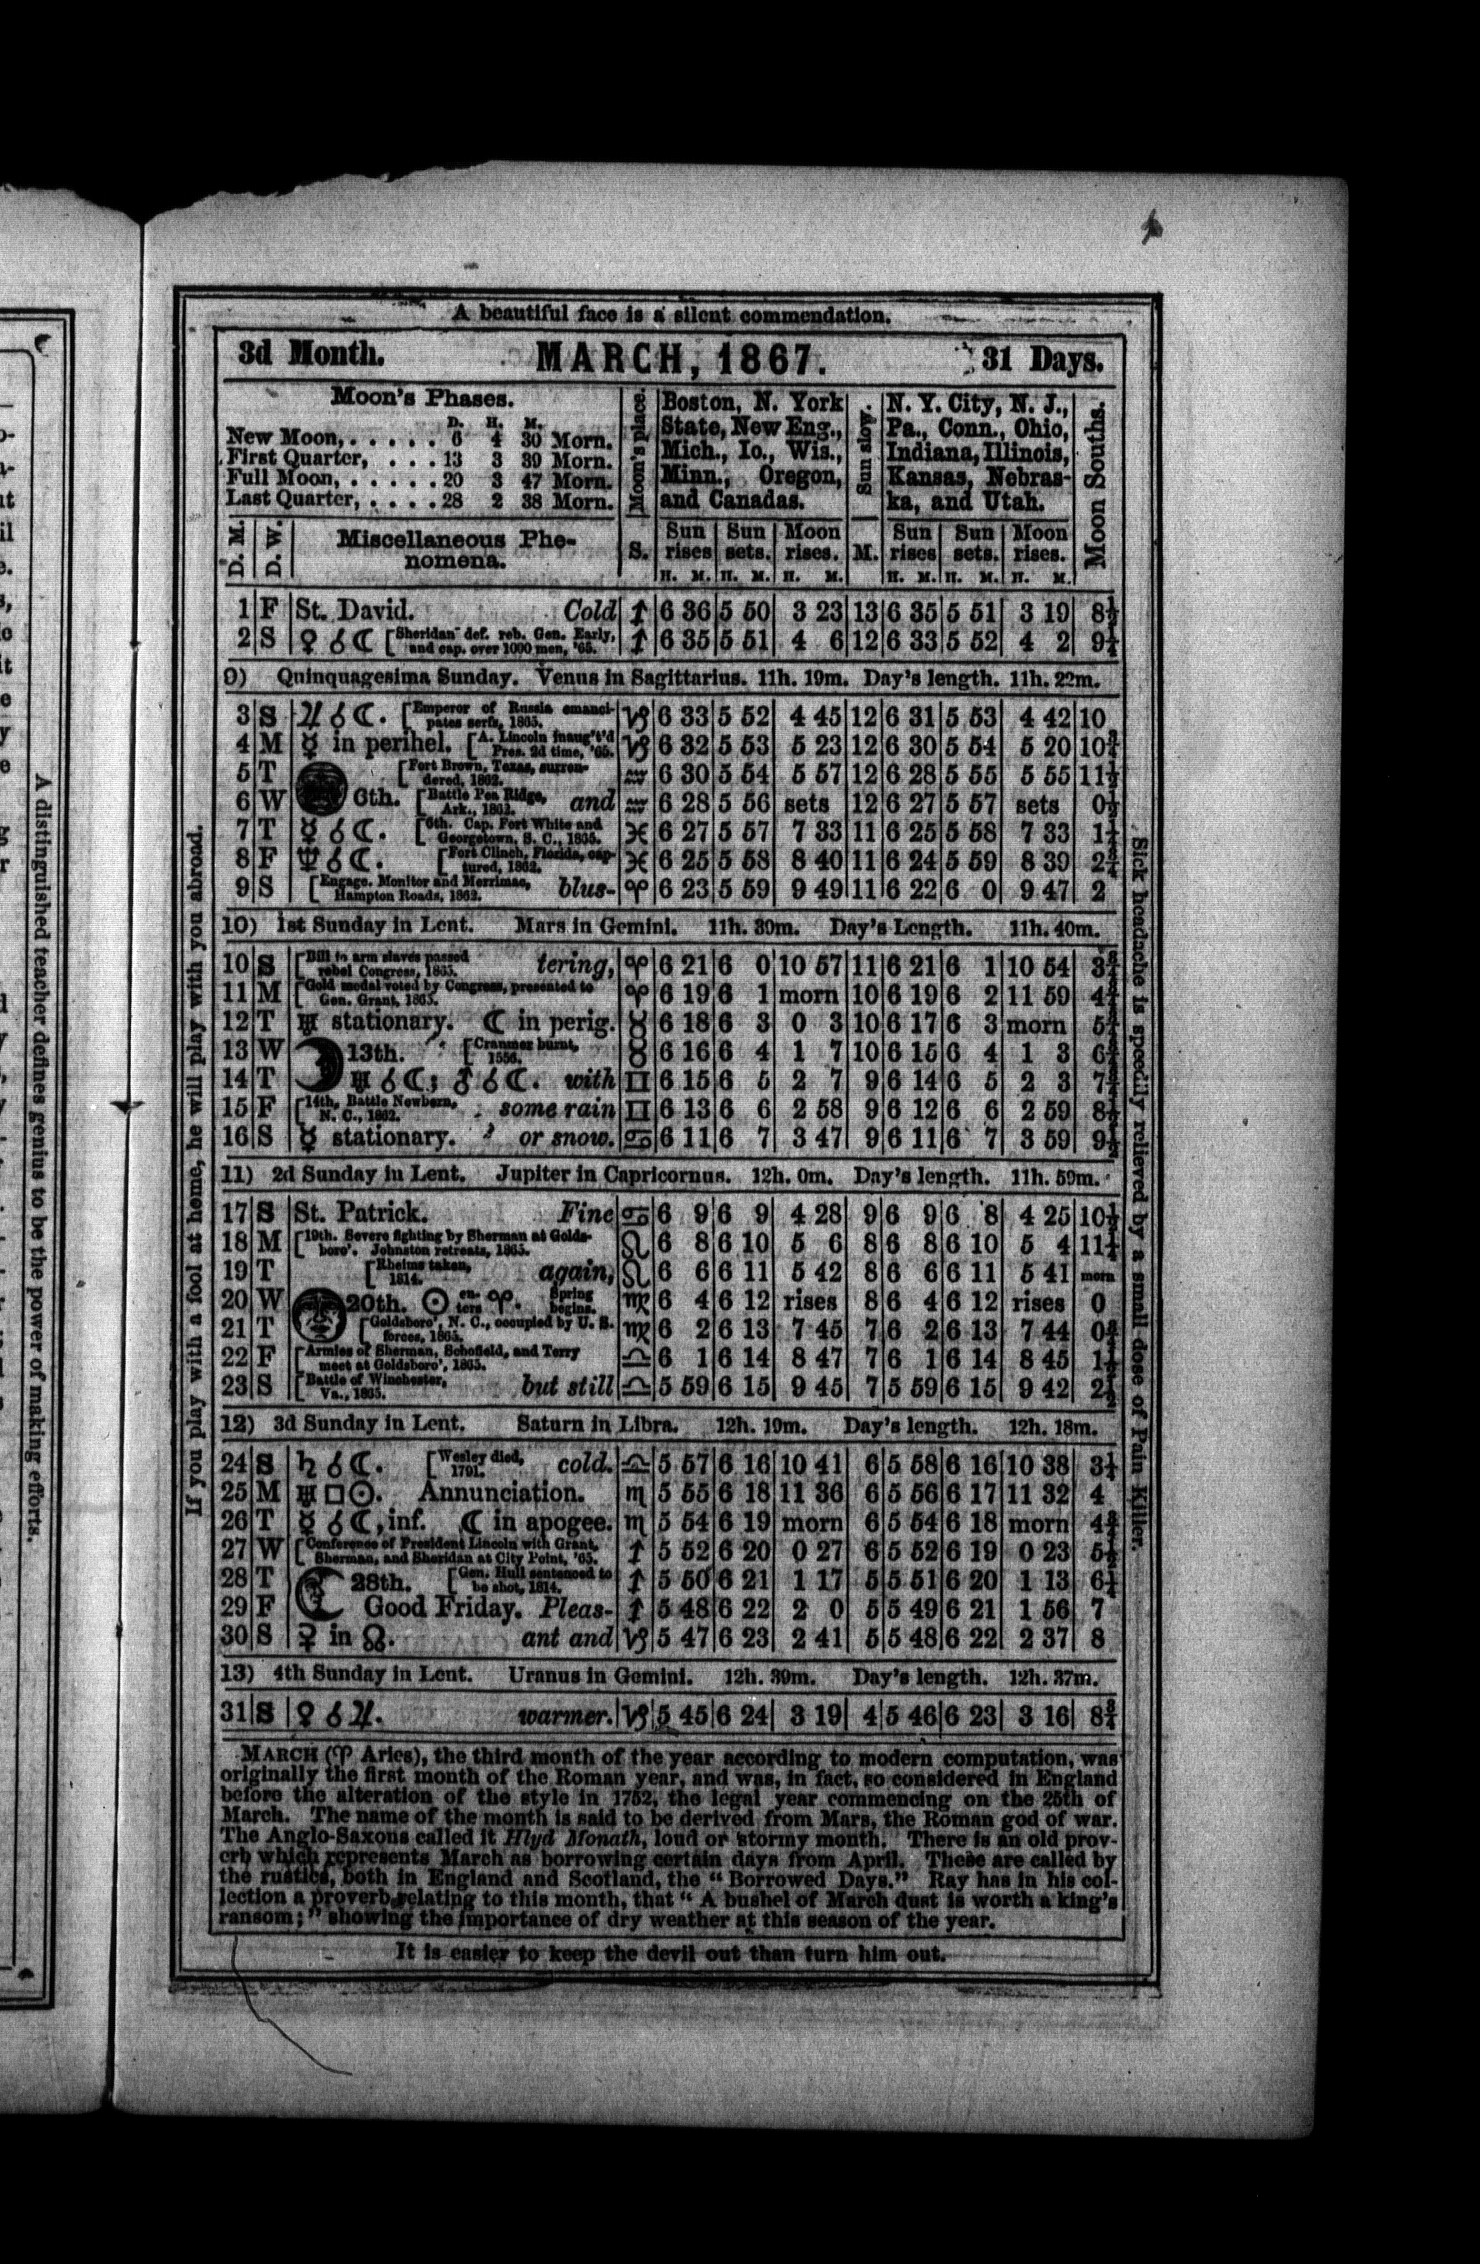 A beautiful face is a silent commendation.
3d Month. MARCH, 1867. 31 Days.
Moon's Phases.
D. H. M.
New Moon, . . . . . 6 4 30 Morn.
First Quarter, . . . 13 3 39 Morn.
Full Moon, . . . . . 20 3 47 Morn.
Last Quarter, . . . . 28 2 38 Morn.
Moon's place.
Boston, N. York
State, New Eng.,
Mich., Io., Wis.,
Minn., Oregon,
and Canadas.
Sun slow.
N. Y. City, N. J.,
Pa., Conn., Ohio,
Indiana, Illinois,
Kansas, Nebras-
ka, and Utah.
Moon Souths.
D. M. D. W. Miscellaneous Phe-
nomena.
S. Sun rises Sun sets. Moon rises. M. Sun rises Sun sets. Moon rises.
H. M. H. M. H. M. H. M. H. M. H. M.
1 F St. David. Cold ♐ 6 36 5 50 3 23 13 6 35 5 51 3 19 8½
2 S ♀ ☌ ☾ [Sheridan def. reb. Gen. Early, and cap. over 1000 men, '65. ♐ 6 35 5 51 4 6 12 6 33 5 52 4 2 9¼
9) Quinquagesima Sunday. Venus in Sagittarius. 11h. 19m. Day's length. 11h. 22m.
3 S ♃ ☌ ☾. [Emperor of Russia emanci- pates serfs, 1863. ♑ 6 33 5 52 4 45 12 6 31 5 53 4 42 10
4 M ☿ in perihel. [A. Lincoln inaug't'd Pres. 2d time, '65. ♑ 6 32 5 53 5 23 12 6 30 5 54 5 20 10¾
5 T [Fort Brown, Texas, surren- dered, 1862. ♒ 6 30 5 54 5 57 12 6 28 5 55 5 55 11½
6 W 6th. [Battle Pea Ridge, Ark., 1862. and ♒ 6 28 5 56 sets 12 6 27 5 57 sets 0½
7 T ☿ ☌ ☾. [6th. Cap. Fort White and Georgetown, S. C., 1865. ♓ 6 27 5 57 7 33 11 6 25 5 58 7 33 1¼
8 F ♆ ☌ ☾. [Fort Clinch, Florida, cap- tured, 1862. ♓ 6 25 5 58 8 40 11 6 24 5 59 8 39 2¼
9 S [Engage. Monitor and Merrimac, Hampton Roads, 1862. blus- ♈ 6 23 5 59 9 49 11 6 22 6 0 9 47 2
10) 1st Sunday in Lent. Mars in Gemini. 11h. 39m. Day's Length. 11h. 40m.
10 S [Bill to arm slaves passed rebel Congress, 1865. tering, ♈ 6 21 6 0 10 57 11 6 21 6 1 10 54 3
11 M [Gold medal voted by Congress, presented to Gen. Grant, 1865. ♈ 6 19 6 1 morn 10 6 19 6 2 11 59 4
12 T ♅ stationary. ☾ in perig. ♉ 6 18 6 3 0 3 10 6 17 6 3 morn 5
13 W 13th. [Cranmer burnt, 1556. ♉ 6 16 6 4 1 7 10 6 15 6 4 1 3 6
14 T ♅ ☌ ☾; ♂ ☌ ☾. with ♊ 6 15 6 5 2 7 9 6 14 6 5 2 3 7
15 F [14th, Battle Newbern, N. C., 1862. some rain ♊ 6 13 6 6 2 58 9 6 12 6 6 2 59 8½
16 S ☿ stationary. or snow. ♋ 6 11 6 7 3 47 9 6 11 6 7 3 59 9½
11) 2d Sunday in Lent. Jupiter in Capricornus. 12h. 0m. Day's length. 11h. 59m.
17 S St. Patrick. Fine ♋ 6 9 6 9 4 28 9 6 9 6 8 4 25 10½
18 M [19th. Severe fighting by Sherman at Golds- boro'. Johnston retreats, 1865. ♌ 6 8 6 10 5 6 8 6 8 6 10 5 4 11¼
19 T [Rheims taken, 1814. again, ♌ 6 6 6 11 5 42 8 6 6 6 11 5 41 morn
20 W 20th. ☉ en- ters ♈. Spring begins. ♍ 6 4 6 12 rises 8 6 4 6 12 rises 0
21 T [Goldsboro', N. C., occupied by U. S. forces, 1865. ♍ 6 2 6 13 7 45 7 6 2 6 13 7 44 0¾
22 F [Armies of Sherman, Schofield, and Terry meet at Goldsboro', 1865. ♎ 6 1 6 14 8 47 7 6 1 6 14 8 45 1½
23 S [Battle of Winchester, Va., 1865. but still ♎ 5 59 6 15 9 45 7 5 59 6 15 9 42 2½
12) 3d Sunday in Lent. Saturn in Libra. 12h. 19m. Day's length. 12h. 18m.
24 S ♄ ☌ ☾. [Wesley died, 1791. cold. ♎ 5 57 6 16 10 41 6 5 58 6 16 10 38 3¼
25 M ♅ □ ☉. Annunciation. ♏ 5 55 6 18 11 36 6 5 56 6 17 11 32 4
26 T ☿ ☌ ☾, inf. ☾ in apogee. ♏ 5 54 6 19 morn 6 5 54 6 18 morn 4¾
27 W [Conference of President Lincoln with Grant, Sherman, and Sheridan at City Point, '65. ♐ 5 52 6 20 0 27 6 5 52 6 19 0 23 5½
28 T 28th. [Gen. Hull sentenced to be shot, 1814. ♐ 5 50 6 21 1 17 5 5 51 6 20 1 13 6¼
29 F Good Friday. Pleas- ♐ 5 48 6 22 2 0 5 5 49 6 21 1 56 7
30 S ☿ in ☊. ant and ♑ 5 47 6 23 2 41 5 5 48 6 22 2 37 8
13) 4th Sunday in Lent. Uranus in Gemini. 12h. 39m. Day's length. 12h. 37m.
31 S ♀ ☌ ♃. warmer. ♑ 5 45 6 24 3 19 4 5 46 6 23 3 16 8¾
MARCH (♈ Aries), the third month of the year according to modern computation, was
originally the first month of the Roman year, and was, in fact, so considered in England
before the alteration of the style in 1752, the legal year commencing on the 25th of
March. The name of the month is said to be derived from Mars, the Roman god of war.
The Anglo-Saxons called it Hlyd Monath, loud or stormy month. There is an old prov-
erb which represents March as borrowing certain days from April. These are called by
the rustics, both in England and Scotland, the "Borrowed Days." Ray has in his col-
lection a proverb relating to this month, that "A bushel of March dust is worth a king's
ransom;" showing the importance of dry weather at this season of the year.
It is easier to keep the devil out than turn him out.
If you play with a fool at home, he will play with you abroad.
Sick headache is speedily relieved by a small dose of Pain Killer.
A distinguished teacher defines genius to be the power of making efforts.